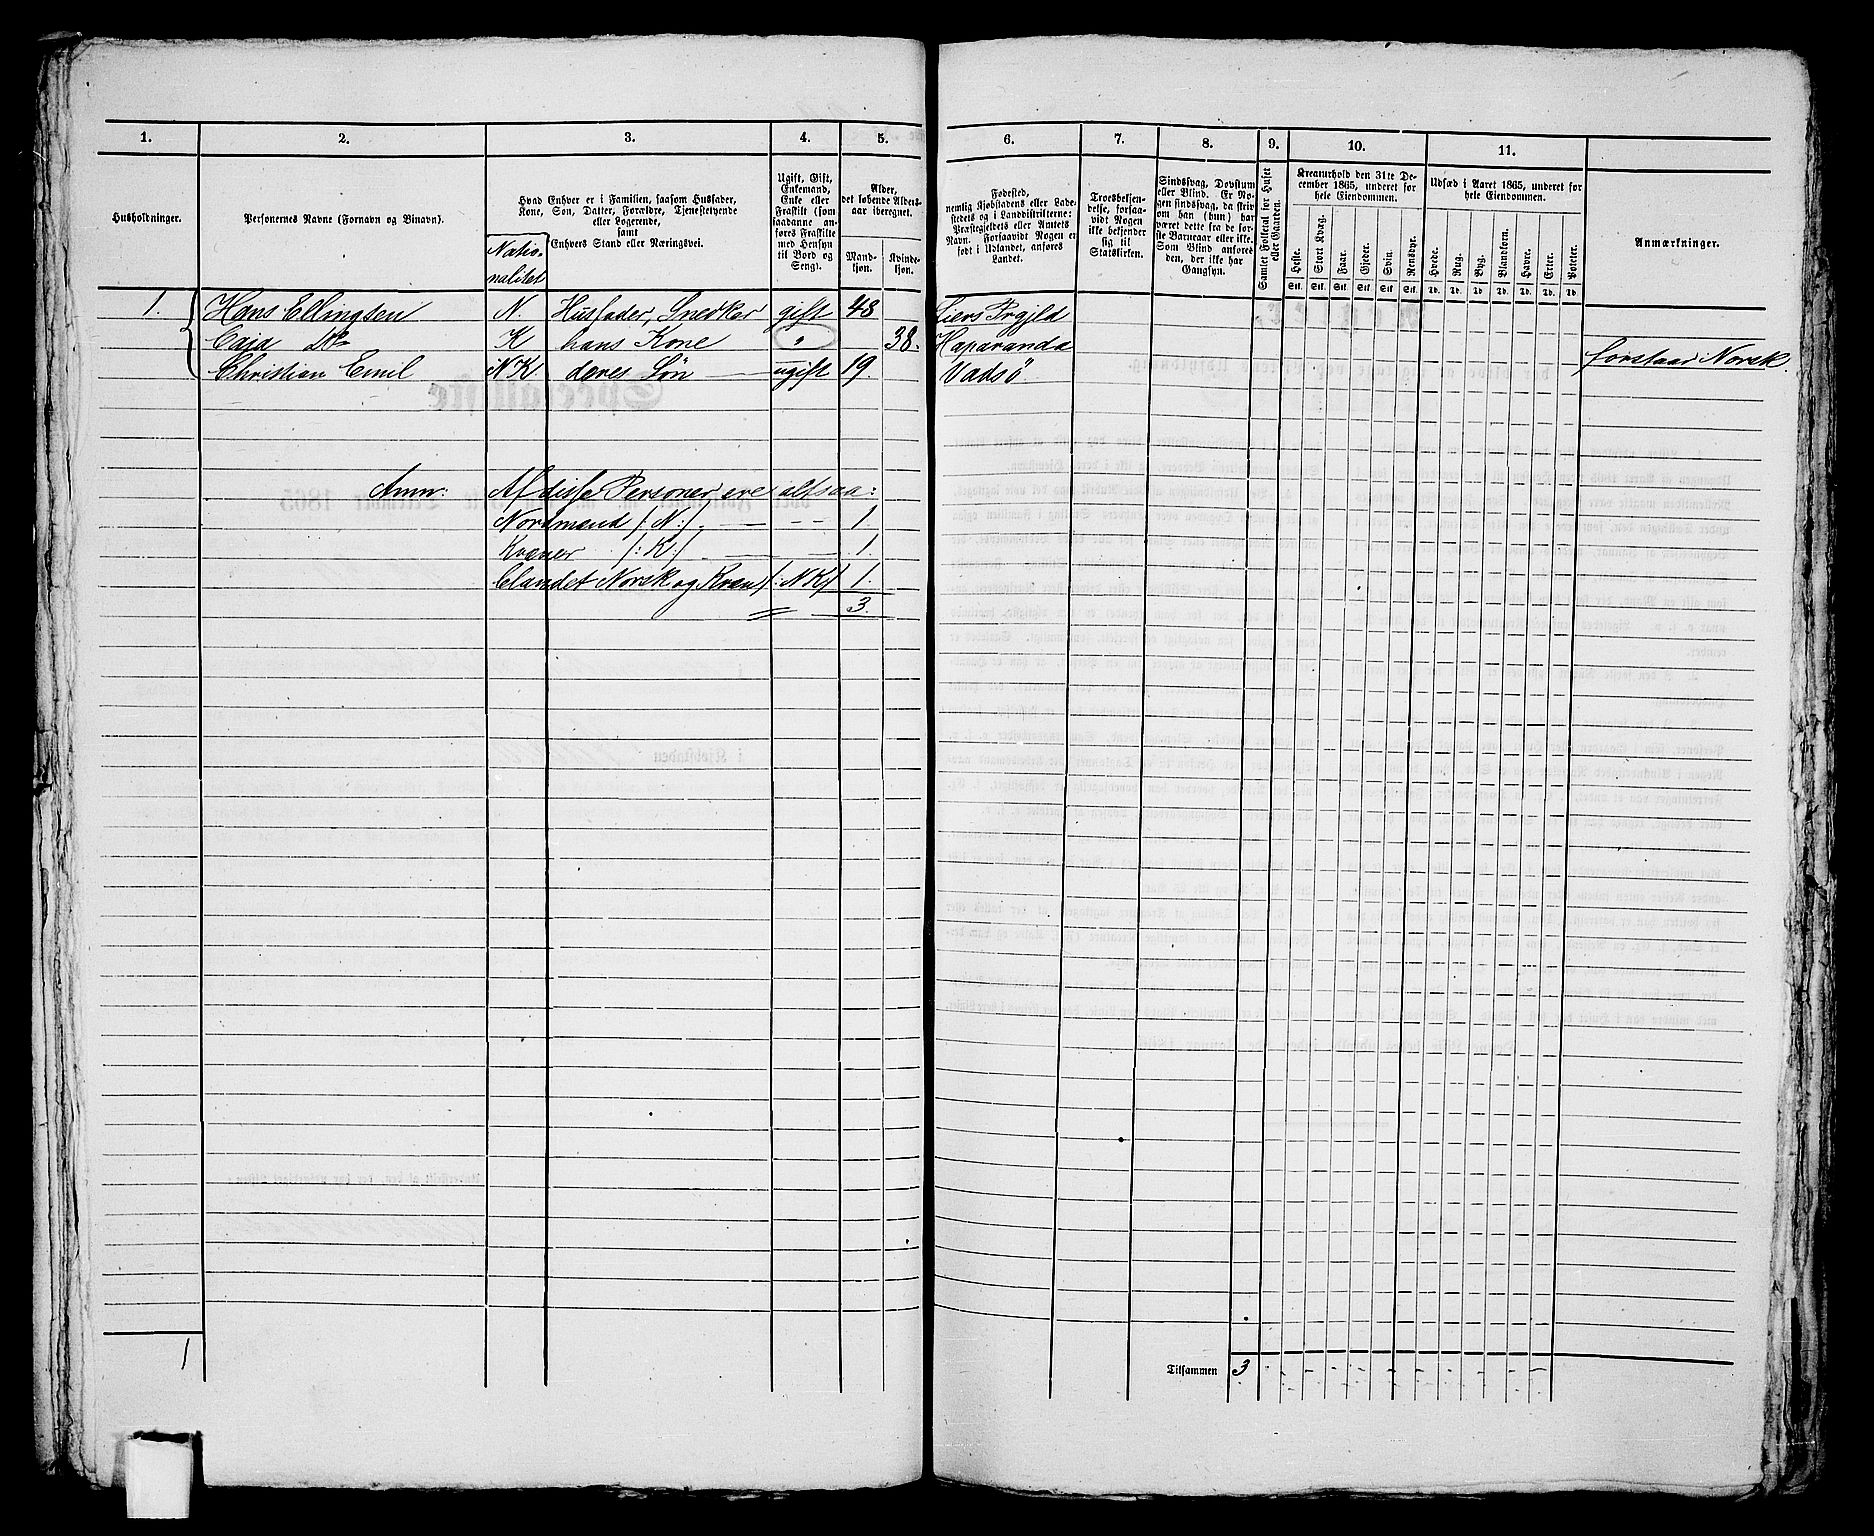 1. 2. 3. 4. 5. 6. 7. 8. 9. 10. 11.
Husholdninger.
Personernes Navne (Fornavn og Binavn).
Hvad Enhver er i Familien, saasom Husfader,
Kone, Søn, Datter, Forældre, Tjenestetyende
eller Logerende,
samt
Enhvers Stand eller Næringsvei.
Natio-
nalitet
Ugift, Gift,
Enkemand,
Enke eller
Fraskilt (som
saadanne an-
føres Fraskilte
med Hensyn
til Bord og
Seng).
Alder,
det løbende Alders-
aar iberegnet.
Mand-
kjøn.
Kvinde-
kjøn.
Fødested,
nemlig Kjøbstadens eller Lade-
stedets og i Landdistrikterne:
Præstegjeldets eller Amtets
Navn. Forsaavidt Nogen er
født i Udlandet, anføres
Landet.
Troesbekjen-
delse, forsaa-
vidt Nogen
ikke bekjender
sig til
Statskirken.
Sindssvag, Døvstum
eller Blind. Er No-
gen sindssvag, da skriv
om han (hun) har
været dette fra de før-
ste Barneaar eller ikke.
Som Blind anføres
den, der ikke har
Gangsyn.
Samlet Folketal for Huset
eller Gaarden.
Kreaturhold den 31te De-
cember 1865, underet for
hele Eiendommen.
Heste. Stort Kvæg. Faar. Gjeder. Svin. Rensdyr.
Stk. Stk. Stk. Stk. Stk. Stk.
Udsæd i Aaret 1865, underet for
hele Eiendommen.
Hvede. Rug. Byg. Blandkorn. Havre. Erter. Poteter.
Td. Td. Td. Td. Td. Td. Td.
Anmærkninger.
1. Hans Ellingsen N. Husfader, Snedker gift 48 Liers Prgjld
Caja Do K hans Kone " 38. Haparanda forstaar Norsk.
Christian Emil NK. deres Søn ugift 19. Vadsö.
Anm: Af disse Personer ere altsaa:
Nordmænd /:N:/ 1.
Kvæner /:K:/ 1.
Blandet Norsk og Kvæn /:NK/ 1.
3.
1
Tilsammen 3